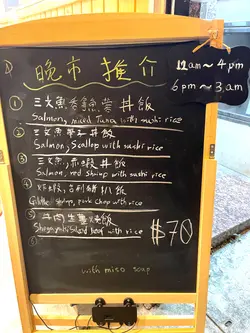 晚市推介
12am~4pm
6pm~3am
① 三文魚吞拿魚蓉丼飯
Salmon, mixed Tuna with sushi rice
② 三文魚帶子丼飯
Salmon, Scallop with sushi rice
③ 三文魚,赤蝦丼飯
Salmon, red shrimp with sushi rice
④ 炸蝦,吉列豬扒飯
shrimp, pork chop with rice
⑤ 牛肉生薑燒飯
beef with rice
$70
with miso soup